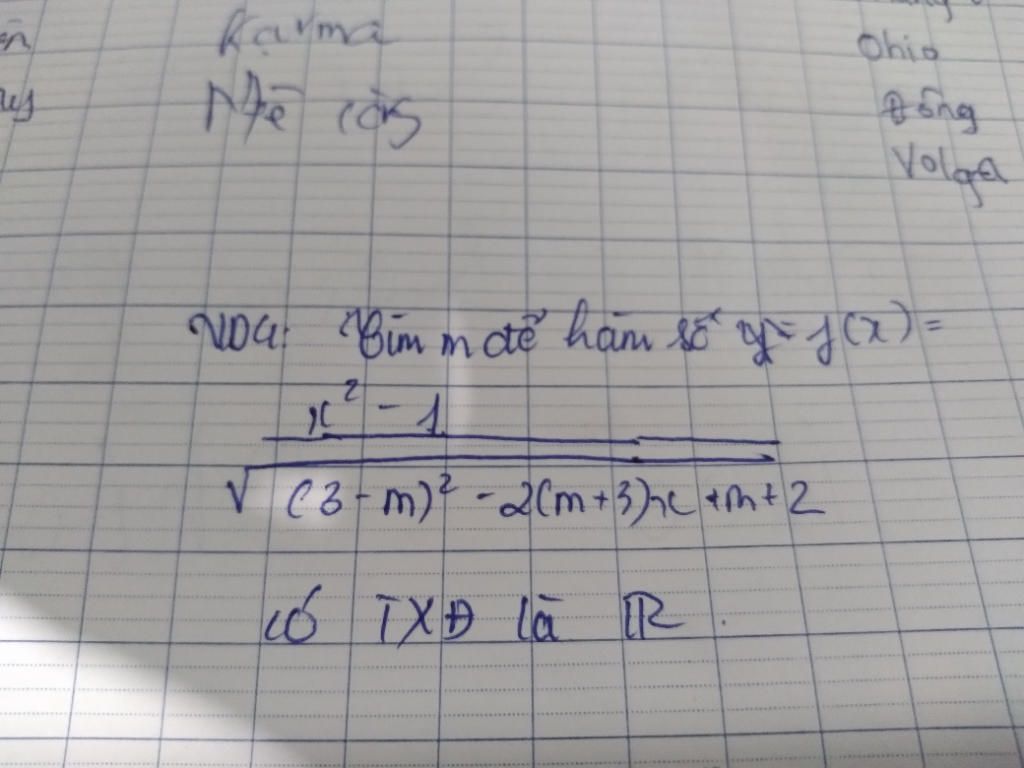 Karma
Ohio
Đông
Volga
VD4: Tìm m để hàm số y = f(x) =
x² - 1
√(3-m)² - 2(m+3)x + m + 2
có TXĐ là R.